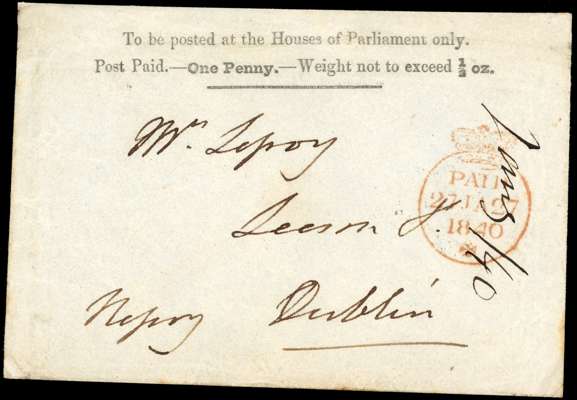 To be posted at the Houses of Parliament only.
Post Paid.—One Penny.—Weight not to exceed ½ oz.
Mrs Lefroy
Leeson St.
Dublin
PAID
27 JA 27
1840